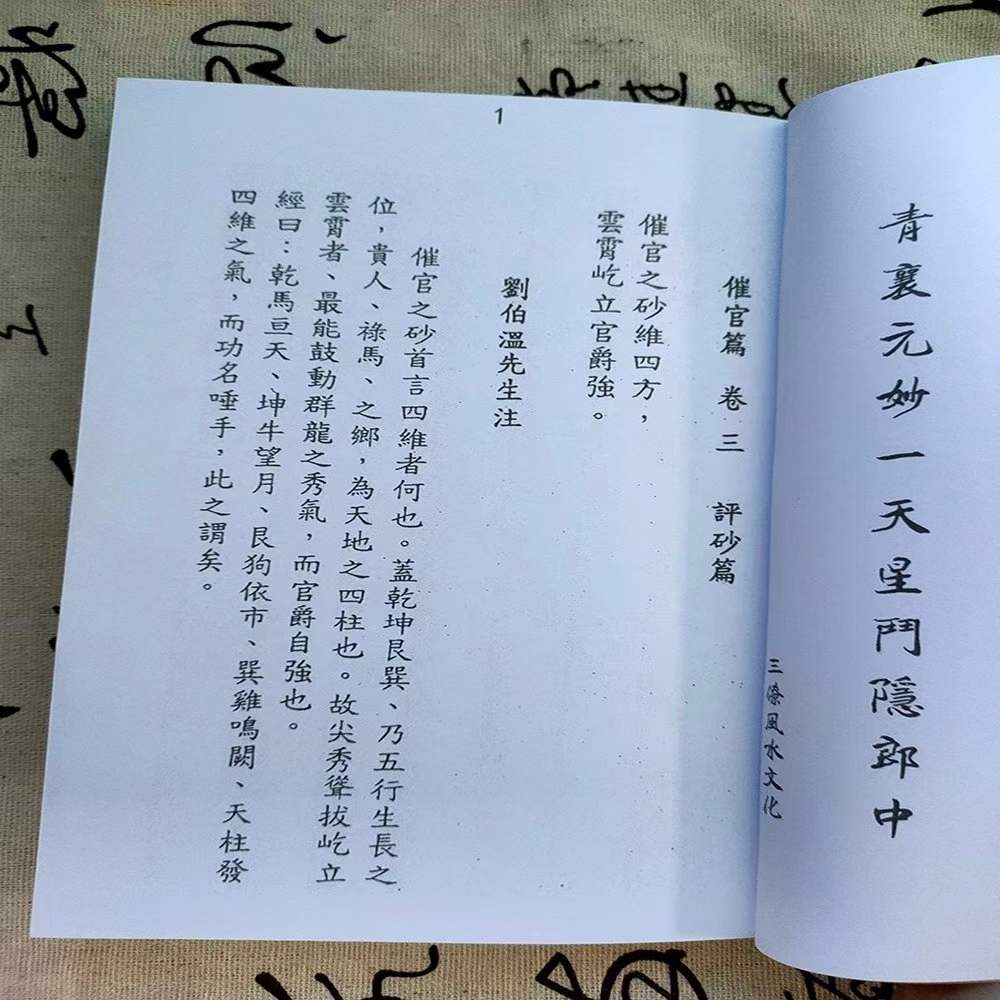 青襄元妙一天星鬥隱郎中
三僚風水文化
1
催官篇 卷三 評砂篇
催官之砂維四方，
雲霄屹立官爵強。
劉伯溫先生注
催官之砂首言四維者何也。蓋乾坤艮巽、乃五行生長之
位，貴人、祿馬、之鄉，為天地之四柱也。故尖秀聳拔屹立
雲霄者、最能鼓動群龍之秀氣，而官爵自強也。
經曰：乾馬亘天、坤牛望月、艮狗依市、巽雞鳴闕、天柱發
四維之氣，而功名唾手，此之謂矣。